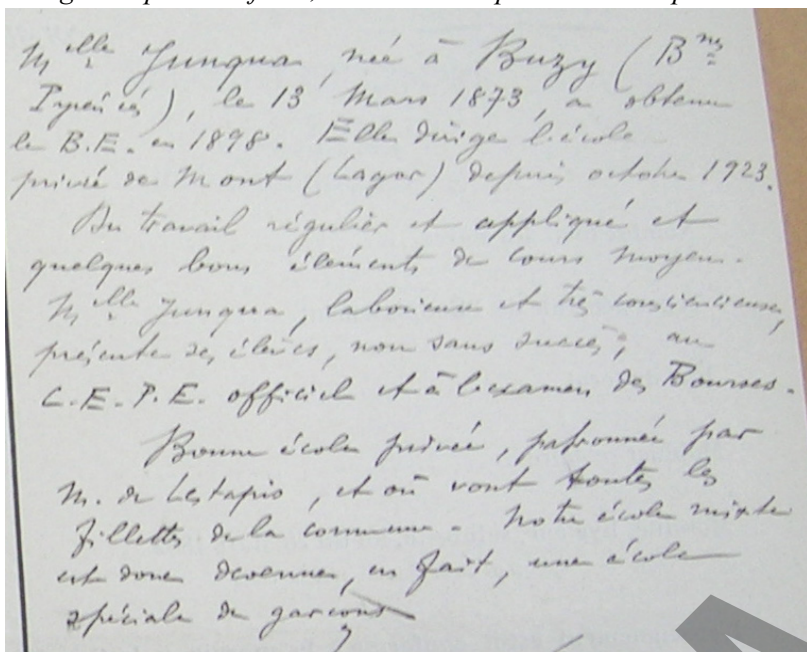 Melle Junqua, née à Buzy (Bses
Pyrénées), le 13 Mars 1873, a obtenu
le B.E. en 1898. Elle dirige l'école
privée de Mont (Lagor) depuis octobre 1923.
Du travail régulier et appliqué et
quelques bons éléments du cours moyen.
Melle Junqua, laborieuse et très consciencieuse,
présente des élèves, non sans succès, au
C.E.P.E. officiel et à l'examen des Bourses.
Bonne école privée, patronnée par
M. de Lestapis, et où vont toutes les
fillettes de la commune. Notre école mixte
est donc devenue, en fait, une école
spéciale de garçons